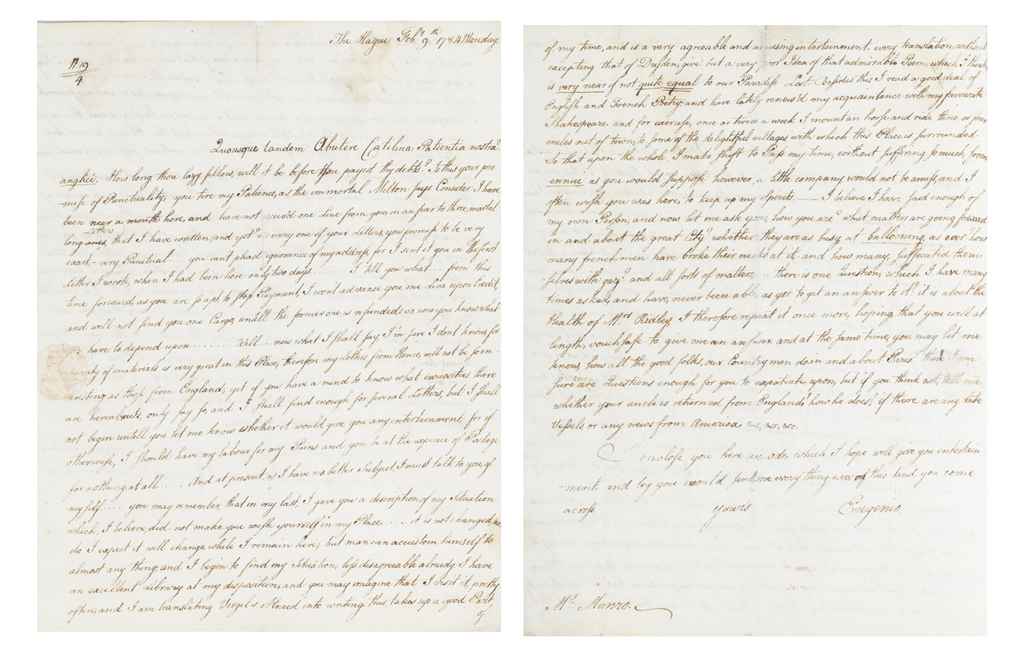 The Hague Feb.y 9th 1784 Monday
N 19
4
Quousque tandem Abutere Catilina Patientia nostra
anglicè. How long thou lazy fellow, will it be before thou payest thy debts? Is this your pro-
mise of Punctuality; you tire my Patience, as the immortal Milton says Consider I have
been near a month here, and have not received one line from you in answer to three, mortal
long ones, that I have written, and yet in every one of your Letters, you promise to be very
exact - very Punctual you cant plead ignorance of my address for I sent it you in the first
letter I wrote, when I had been here only two days I tell you what from this
time forward, as you are so apt to stop Payment, I wont advance you one Line upon Credit,
and will not send you one Cargo, untill the former one is refunded; so now you know what
you have to depend upon Well now what I shall say I'm sure I dont know, for
scarcity of materials is very great in this Place, therefore my letters from Hence, will not be so in-
teresting as those from England; yet if you have a mind to know what curiosities there
are hereabouts, only say so and I shall find enough for several Letters, but I shall
not begin untill you let me know whether it would give you any entertainment, for if
otherwise, I should have my labour for my Pains and you be at the expence of Postage
for nothing at all And at present as I have no better Subject I must talk to you of
myself you may remember, that in my last, I gave you a description of my situation
which, I believe, did not make you wish yourself in my Place it is not changed, nor
do I expect it will change while I remain here; but man can accustom himself to
almost any thing, and I begin to find my situation, less disagreeable already I have
an excellent Library at my disposition, and you may imagine that I visit it pretty
often; and I am translating Virgil's Æneid into writing this takes up a good Part
of
of my time, and is a very agreeable and amusing entertainment. every translation, without
excepting that of Dryden, give but a very poor Idea of that admirable Poem, which I think
is very near if not quite equal to our Paradise Lost Besides this I read a good deal of
English and French Poetry, and have lately renew'd my acquaintance with my favourite
Shakespeare. and for exercise, once or twice a week I mount an horse and ride three or four
miles out of town, to some of the delightful villages with which this Place is surrounded
So that upon the whole I make shift to Pass my time, without suffering so much from
ennui as you would suppose however, a little company would not be amiss, and I
often wish you was here, to keep up my Spirits. I believe I have said enough of
my own Person, and now let me ask you, how you are? what matters are going forward
in and about the great City? whether they are as busy at ballooning as ever? how
many frenchmen have broke their necks at it and how many, suffocated them-
selves with gas? and all sorts of matter. there is one Question, which I have many
times asked, and have, never been able, as yet to get an answer to it: it is about the
Health of Mrs Ridley I therefore repeat it once more, hoping that you will at
length, vouchsafe to give me an answer and at the same time you may let me
know, how all the good folks, our Countrymen do in and about Paris?
sure are Questions enough for you to expatiate upon, but if you think not, tell me
whether your uncle is returned from England? how he does? if there are any late
Vessels or any news from America &c. &c. &c.
I enclose you here an ode, which I hope will give you entertain-
-ment. and beg you would send me every thing new of this kind you come
across
yours
Eugenio
Mr. Monroe